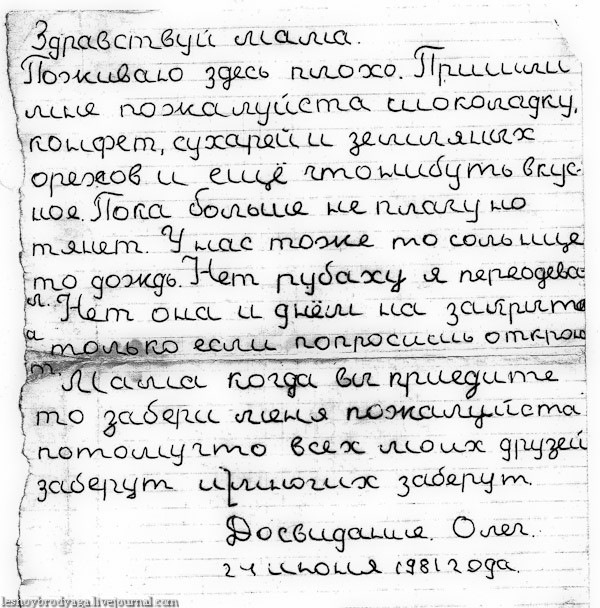 Здравствуй мама.
Поживаю здесь плохо. Пришли
мне пожалуйста шоколадку,
конфет, сухарей и земляных
орехов и ещё чтонибуть вкус-
ное. Пока больше не плачу но
тянет. У нас тоже то солнце
то дождь. Нет рубаху я переодева-
л. Нет она и днём на закрыта
а только если попросишь откроют
Мама когда вы приедите
то забери меня пожалуйста.
потомучто всех моих друзей
заберут и многих заберут.
Досвидание. Олег.
24 июня 1981 года.
lesnoybrodyaga.livejournal.com